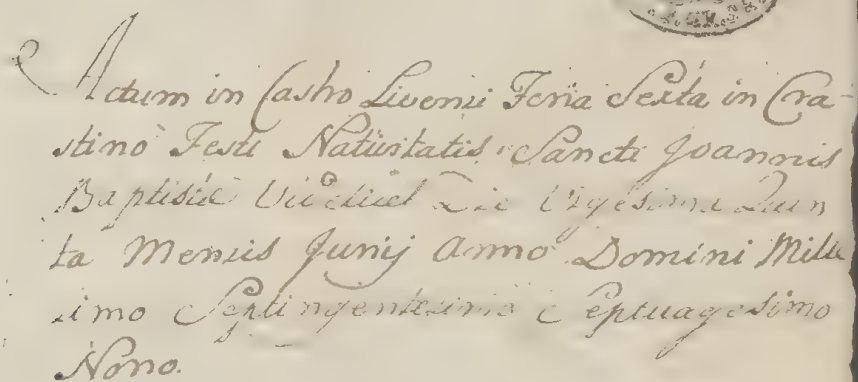 Actum in Castro Livensi Feria Sexta in Cra-
stino Festi Nativitatis Sancti Joannis
Baptistæ Videlicet Die Vigesima Quin
ta Mensis Junij Anno Domini Mille
simo Septingentesimo Septuagesimo
Nono.